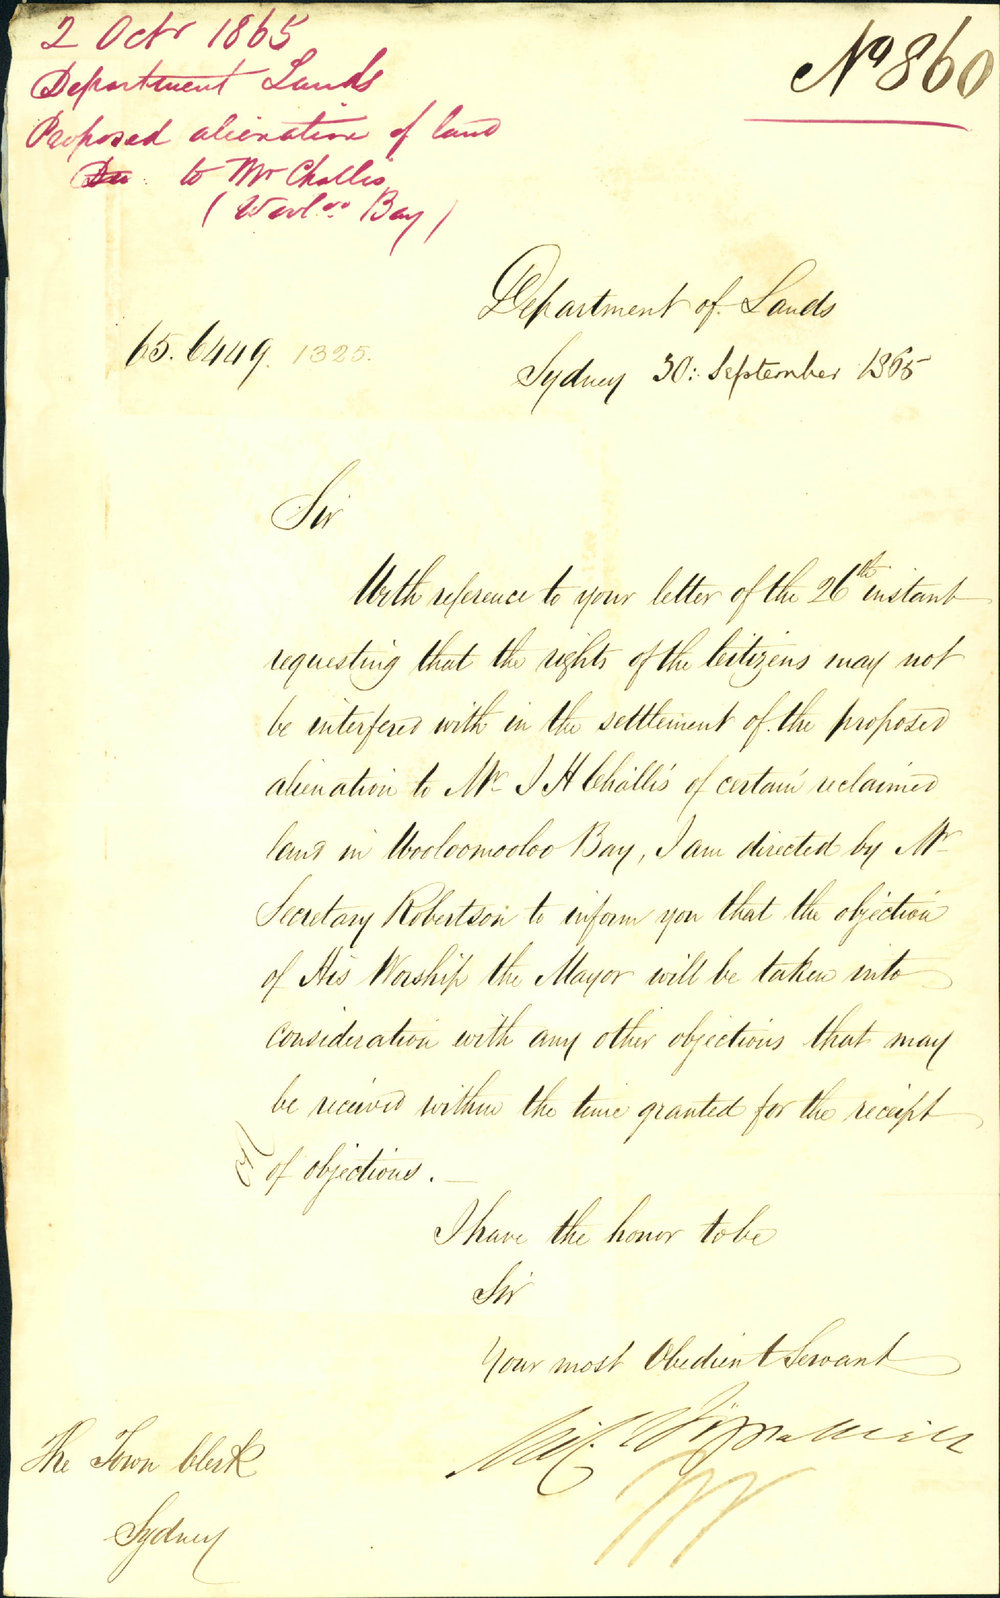 2 Octr 1865
Department Lands
Proposed alienation of land
to Mr Challis
(Wool oo Bay)
No 860
Department of Lands
65.6449. 1325.
Sydney 30: September 1865
Sir
With reference to your letter of the 26th instant
requesting that the rights of the Citizens may not
be interfered with in the settlement of the proposed
alienation to Mr J H Challis of certain reclaimed
land in Wooloomooloo Bay, I am directed by Mr
Secretary Robertson to inform you that the objection
of His Worship the Mayor will be taken into
consideration with any other objections that may
be received within the time granted for the receipt
of objections. —
I have the honor to be
Sir
Your most Obedient Servant
Mich Fitzpatrick
The Town Clerk
Sydney